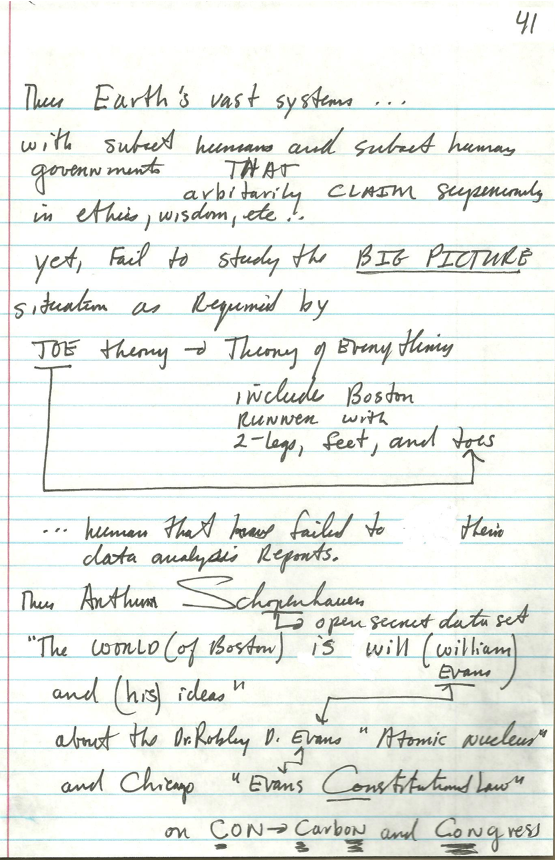 41
Thus Earth's vast systems ...
with subset humans and subset human
governments THAT
arbitarily CLAIM superiority
in ethics, wisdom, etc..
yet, Fail to study the BIG PICTURE
situation as Required by
TOE theory → Theory of Everything
include Boston
RUNNER with
2-legs, feet, and toes
... human that have failed to their
data analysis Reports.
Thus Arthur Schopenhauer
open secret data set
"The WORLD (of Boston) is will (william)
Evans
and (his) ideas"
about the Dr. Robley D. Evans "Atomic nucleus"
and Chicago "Evans Constitutional Law"
on CON→ Carbon and Congress